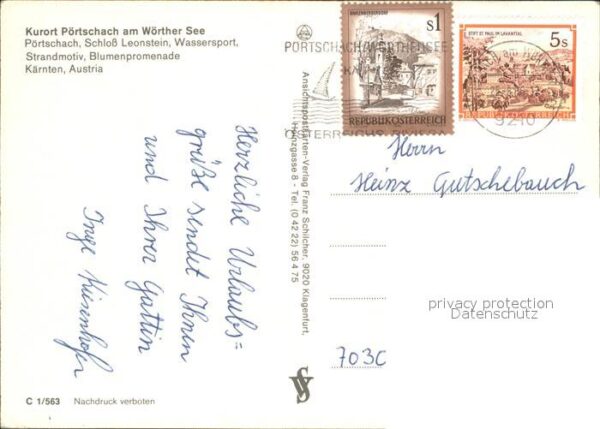 Kurort Pörtschach am Wörther See
Pörtschach, Schloß Leonstein, Wassersport,
Strandmotiv, Blumenpromenade
Kärnten, Austria
Herzliche Urlaubs=
grüße sendet Ihnen
und Ihrer Gattin
Inge Kiesenhofer
C 1/563 Nachdruck verboten
Ansichtspostkarten-Verlag Franz Schilcher, 9020 Klagenfurt,
Heinzgasse 8 - Tel. (0 42 22) 56 4 75
PÖRTSCHACH/WÖRTHERSEE
ÖSTERREICHS RIVIERA
s1
REPUBLIK ÖSTERREICH
STIFT ST. PAUL IM LAVANTTAL
5s
REPUBLIK ÖSTERREICH
9210
Herrn
Heinz Gutschebauch
privacy protection
Datenschutz
703C